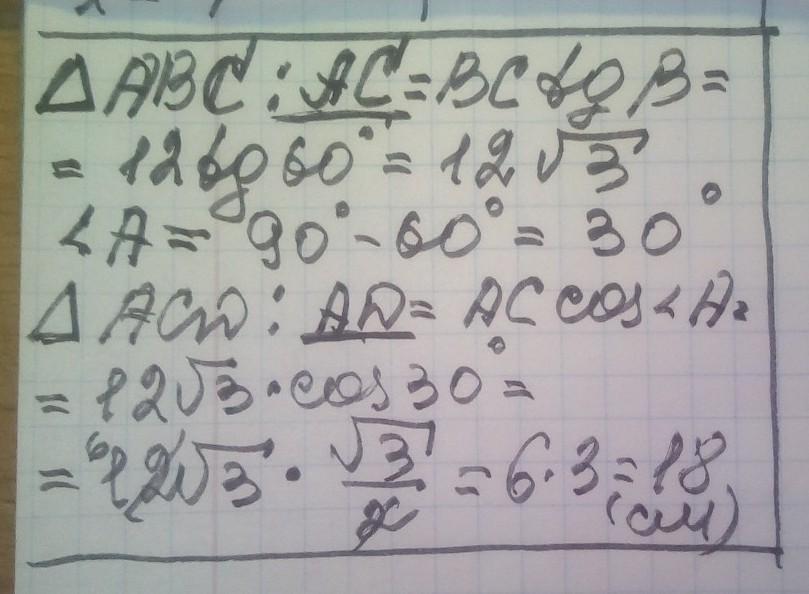 △ABC: AC = BC tg B =
= 12 tg 60° = 12√3
∠A = 90° - 60° = 30°
△ACD: AD = AC cos∠A =
= 12√3 · cos 30° =
= ⁶12√3 · √3/2 = 6·3 = 18
(см)